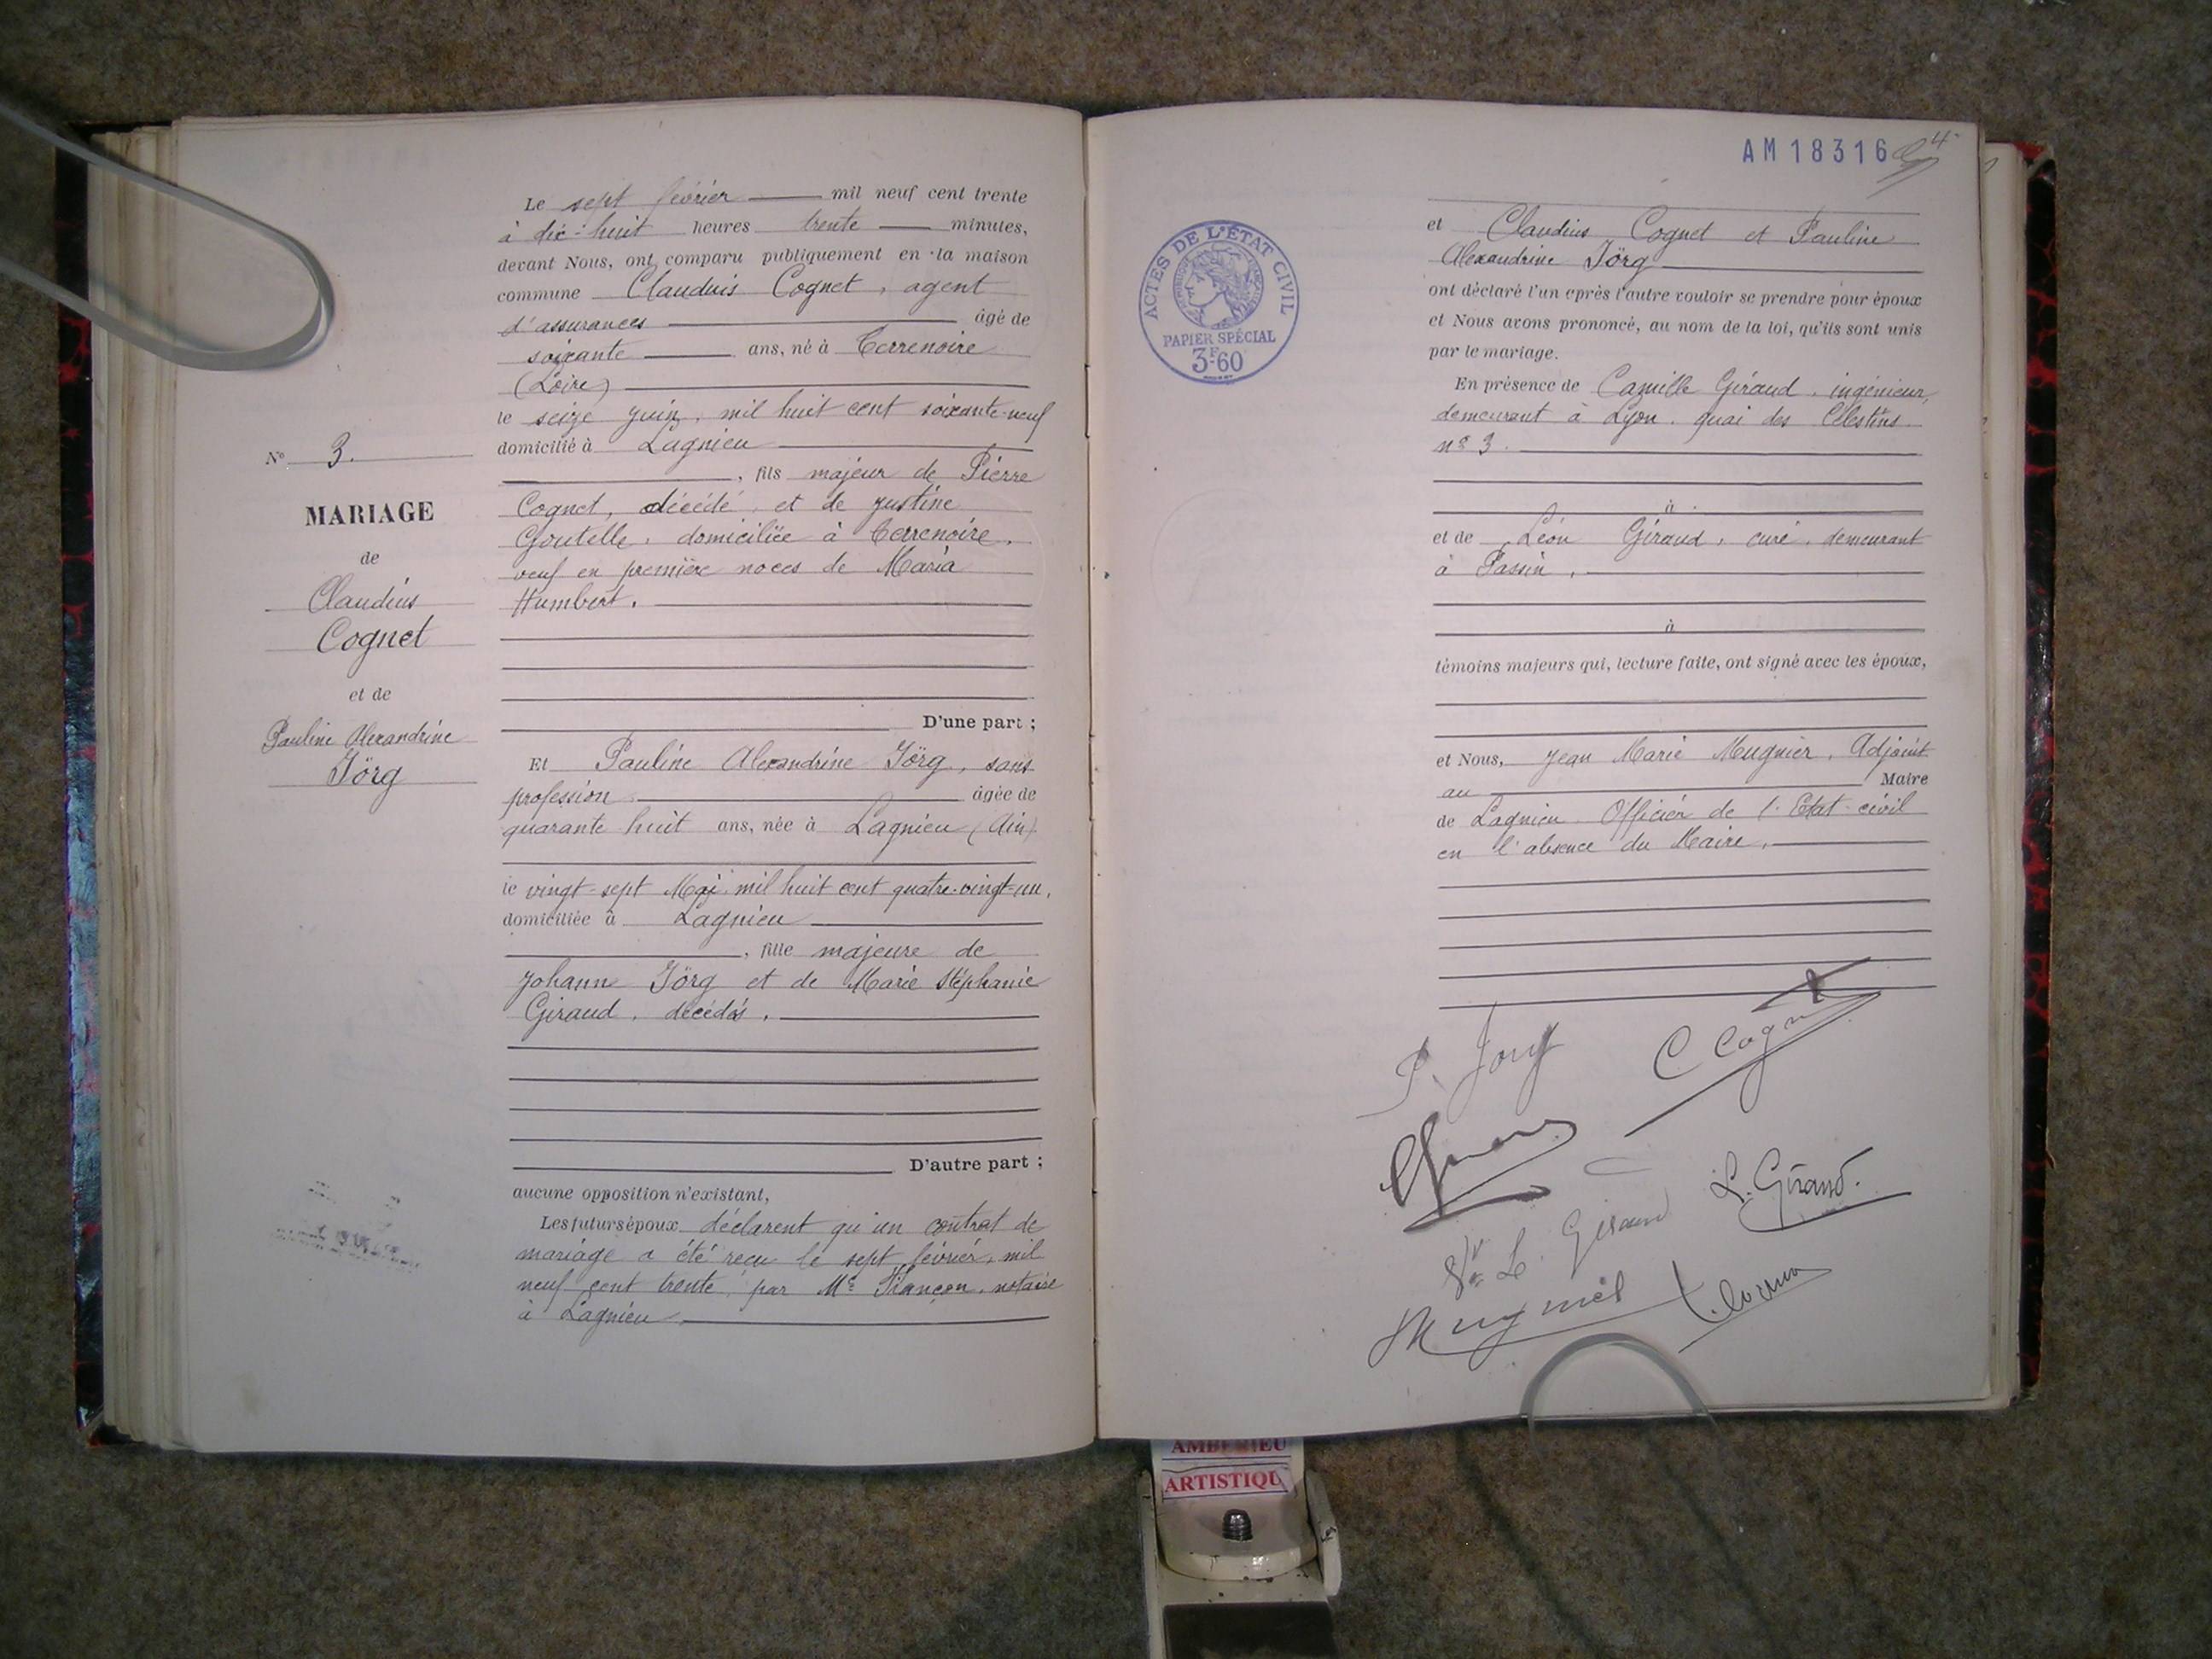 Le sept février mil neuf cent trente
à dix-huit heures trente minutes,
devant Nous, ont comparu publiquement en la maison
commune Claudius Cognet, agent
d'assurances âgé de
soixante ans, né à Terrenoire
(Loire)
le seize juin, mil huit cent soixante-neuf
domicilié à Lagnieu
, fils majeur de Pierre
Cognet, décédé, et de Justine
Goutelle, domiciliée à Terrenoire,
veuf en première noces de Maria
Humbert.
D'une part ;
N° 3.
MARIAGE
de
Claudius
Cognet
et de
Pauline Alexandrine
Jörg
Et Pauline Alexandrine Jörg, sans
profession âgée de
quarante huit ans, née à Lagnieu (Ain)
le vingt-sept Mai mil huit cent quatre-vingt-un,
domiciliée à Lagnieu
, fille majeure de
Johann Jörg et de Marie Stéphanie
Giraud, décédés,
D'autre part ;
aucune opposition n'existant,
Les futurs époux déclarent qu'un contrat de
mariage a été reçu le sept février, mil
neuf cent trente, par Me notaire
à Lagnieu
AM18316
ACTES DE L'ÉTAT CIVIL
PAPIER SPÉCIAL
3F60
et Claudius Cognet et Pauline
Alexandrine Jörg
ont déclaré l'un après l'autre vouloir se prendre pour époux
et Nous avons prononcé, au nom de la loi, qu'ils sont unis
par le mariage.
En présence de Camille Giraud, ingénieur,
demeurant à Lyon, quai des Célestins
n° 3.
à
et de Léon Giraud, curé, demeurant
à Passin,
à
témoins majeurs qui, lecture faite, ont signé avec les époux,
et Nous, Jean Marie Mugnier, Adjoint
au Maire
de Lagnieu Officier de l'Etat-civil
en l'absence du Maire.
P. Jörg
C Cognet
L. Giraud.
Vve L. Giraud
Mugnier
AMBERIEU
ARTISTIQU